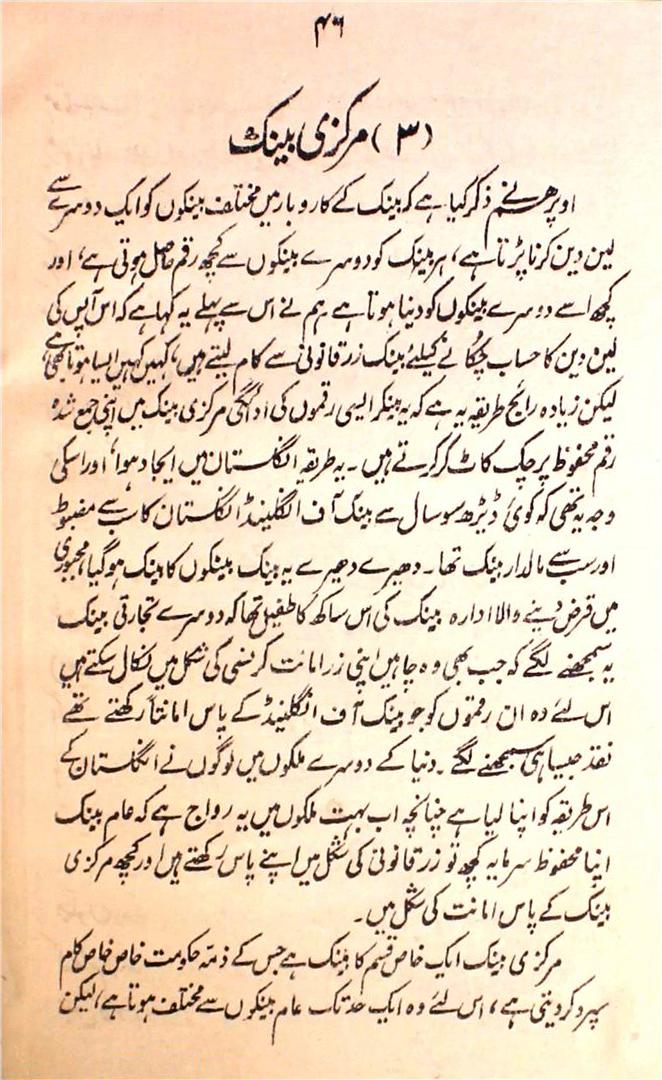 ۴۶
(۳) مرکزی بینک
اوپر ہم نے ذکر کیا ہے کہ بینک کے کاروبار میں مختلف بینکوں کو ایک دوسرے سے
لین دین کرنا پڑتا ہے، ہر بینک کو دوسرے بینکوں سے کچھ رقم حاصل ہوتی ہے، اور
کچھ اسے دوسرے بینکوں کو دینا ہوتا ہے ہم نے اس سے پہلے یہ کہا ہے کہ اس آپس کی
لین دین کا حساب چکانے کیلئے بینک زر قانونی سے کام لیتے ہیں، کہیں کہیں ایسا ہوتا بھی ہے،
لیکن زیادہ رائج طریقہ یہ ہے کہ یہ بینکر ایسی رقموں کی ادائگی مرکزی بینک میں اپنی جمع شدہ
رقم محفوظ پر چک کاٹ کر کرتے ہیں ۔ یہ طریقہ انگلستان میں ایجاد ہوا، اور اسکی
وجہ یہ تھی کہ کوئی ڈیڑھ سو سال سے بینک آف انگلینڈ انگلستان کا سب سے مضبوط
اور سب سے مالدار بینک تھا ۔ دھیرے دھیرے یہ بینک بینکوں کا بینک ہو گیا، مجبوری
میں قرض دینے والا ادارہ بینک کی اس ساکھ کا طفیل تھا کہ دوسرے تجارتی بینک
یہ سمجھنے لگے کہ جب بھی وہ چاہیں اپنی زر امانت کرنسی کی شکل میں نکال سکتے ہیں
اس لئے وہ ان رقموں کو جو بینک آف انگلینڈ کے پاس امانتاً رکھتے تھے
نقد جیسا ہی سمجھنے لگے ۔ دنیا کے دوسرے ملکوں میں لوگوں نے انگلستان کے
اس طریقہ کو اپنا لیا ہے چنانچہ اب بہت ملکوں میں یہ رواج ہے کہ عام بینک
اپنا محفوظ سرمایہ کچھ تو زر قانونی کی شکل میں اپنے پاس رکھتے ہیں اور کچھ مرکزی
بینک کے پاس امانت کی شکل میں ۔
مرکزی بینک ایک خاص قسم کا بینک ہے جس کے ذمہ حکومت خاص خاص کام
سپرد کر دیتی ہے، اس لئے وہ ایک حد تک عام بینکوں سے مختلف ہوتا ہے، لیکن